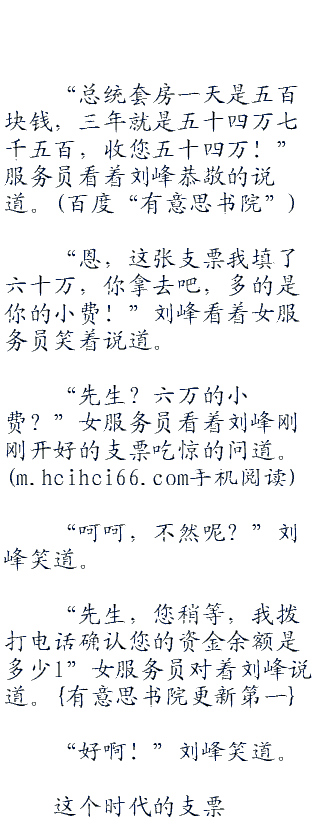 “总统套房一天是五百
块钱，三年就是五十四万七
千五百，收您五十四万！”
服务员看着刘峰恭敬的说
道。(百度“有意思书院”)
“恩，这张支票我填了
六十万，你拿去吧，多的是
你的小费！”刘峰看着女服
务员笑着说道。
“先生？六万的小
费？”女服务员看着刘峰刚
刚开好的支票吃惊的问道。
(m.hcihci66.com手机阅读)
“呵呵，不然呢？”刘
峰笑道。
“先生，您稍等，我拨
打电话确认您的资金余额是
多少1”女服务员对着刘峰说
道。{有意思书院更新第一}
“好啊！”刘峰笑道。
这个时代的支票